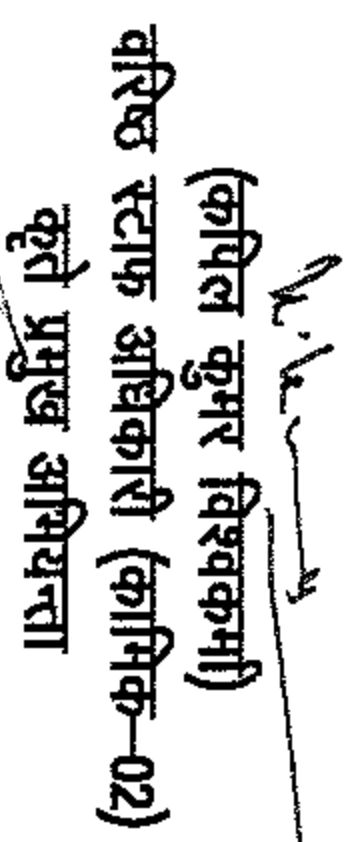 (कपिल कुमार विश्वकर्मा)
वरिष्ठ स्टाफ अधिकारी (कार्मिक–02)
कृते प्रमुख अभियन्ता